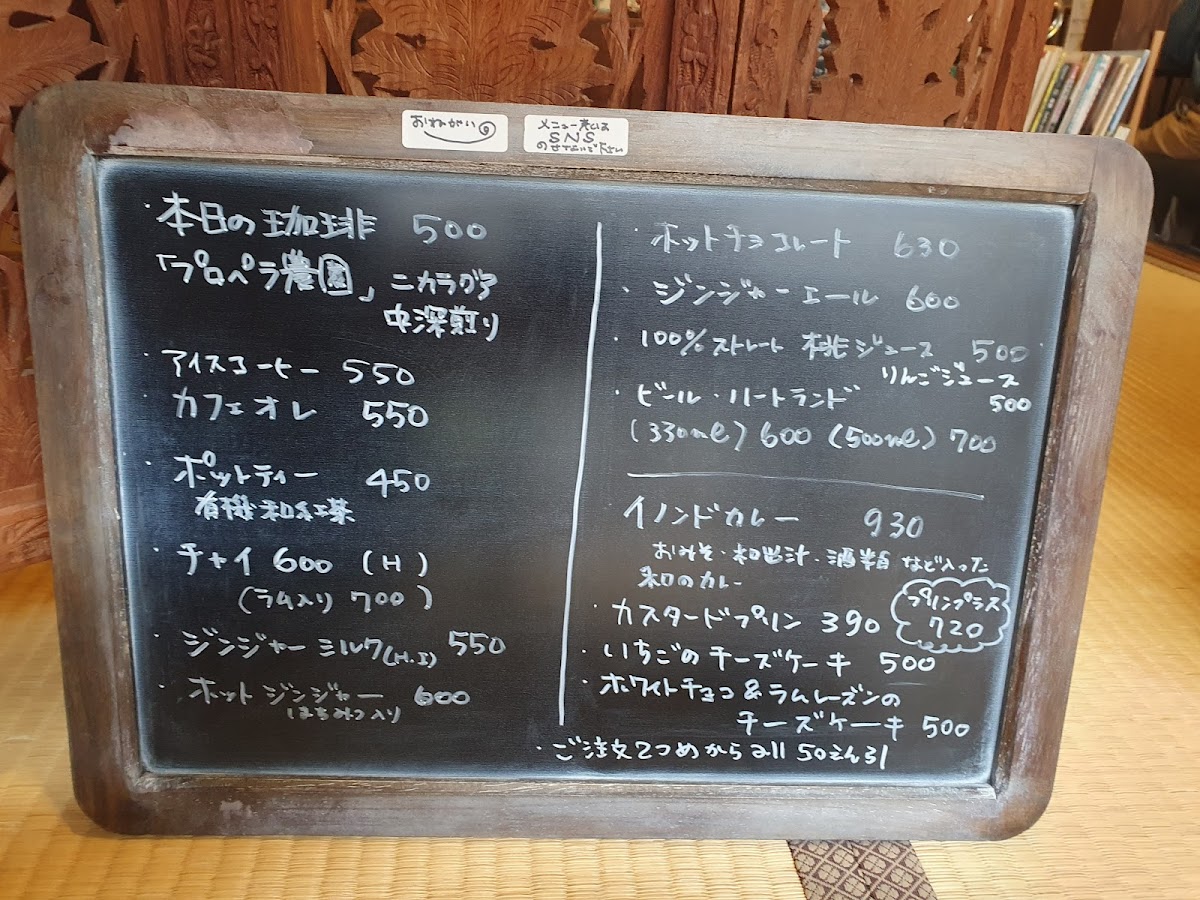 おねがい
メニュー表は
SNS
のせないで下さい
・本日の珈琲 500
「プロペラ農園」ニカラグア
中深煎り
・アイスコーヒー 550
・カフェオレ 550
・ポットティー 450
有機和紅茶
・チャイ 600 (H)
(ラム入り 700)
・ジンジャーミルク(H.I) 550
・ホットジンジャー 600
はちみつ入り
・ホットチョコレート 630
・ジンジャーエール 600
・100%ストレート 桃ジュース 500
りんごジュース
500
・ビール・ハートランド
(330ml) 600 (500ml) 700
イノンドカレー 930
おみそ・和出汁・酒粕 など入った
和のカレー
プリンプラス
720
・カスタードプリン 390
・いちごのチーズケーキ 500
・ホワイトチョコ&ラムレーズンの
チーズケーキ 500
・ご注文2つめから all 50えん引